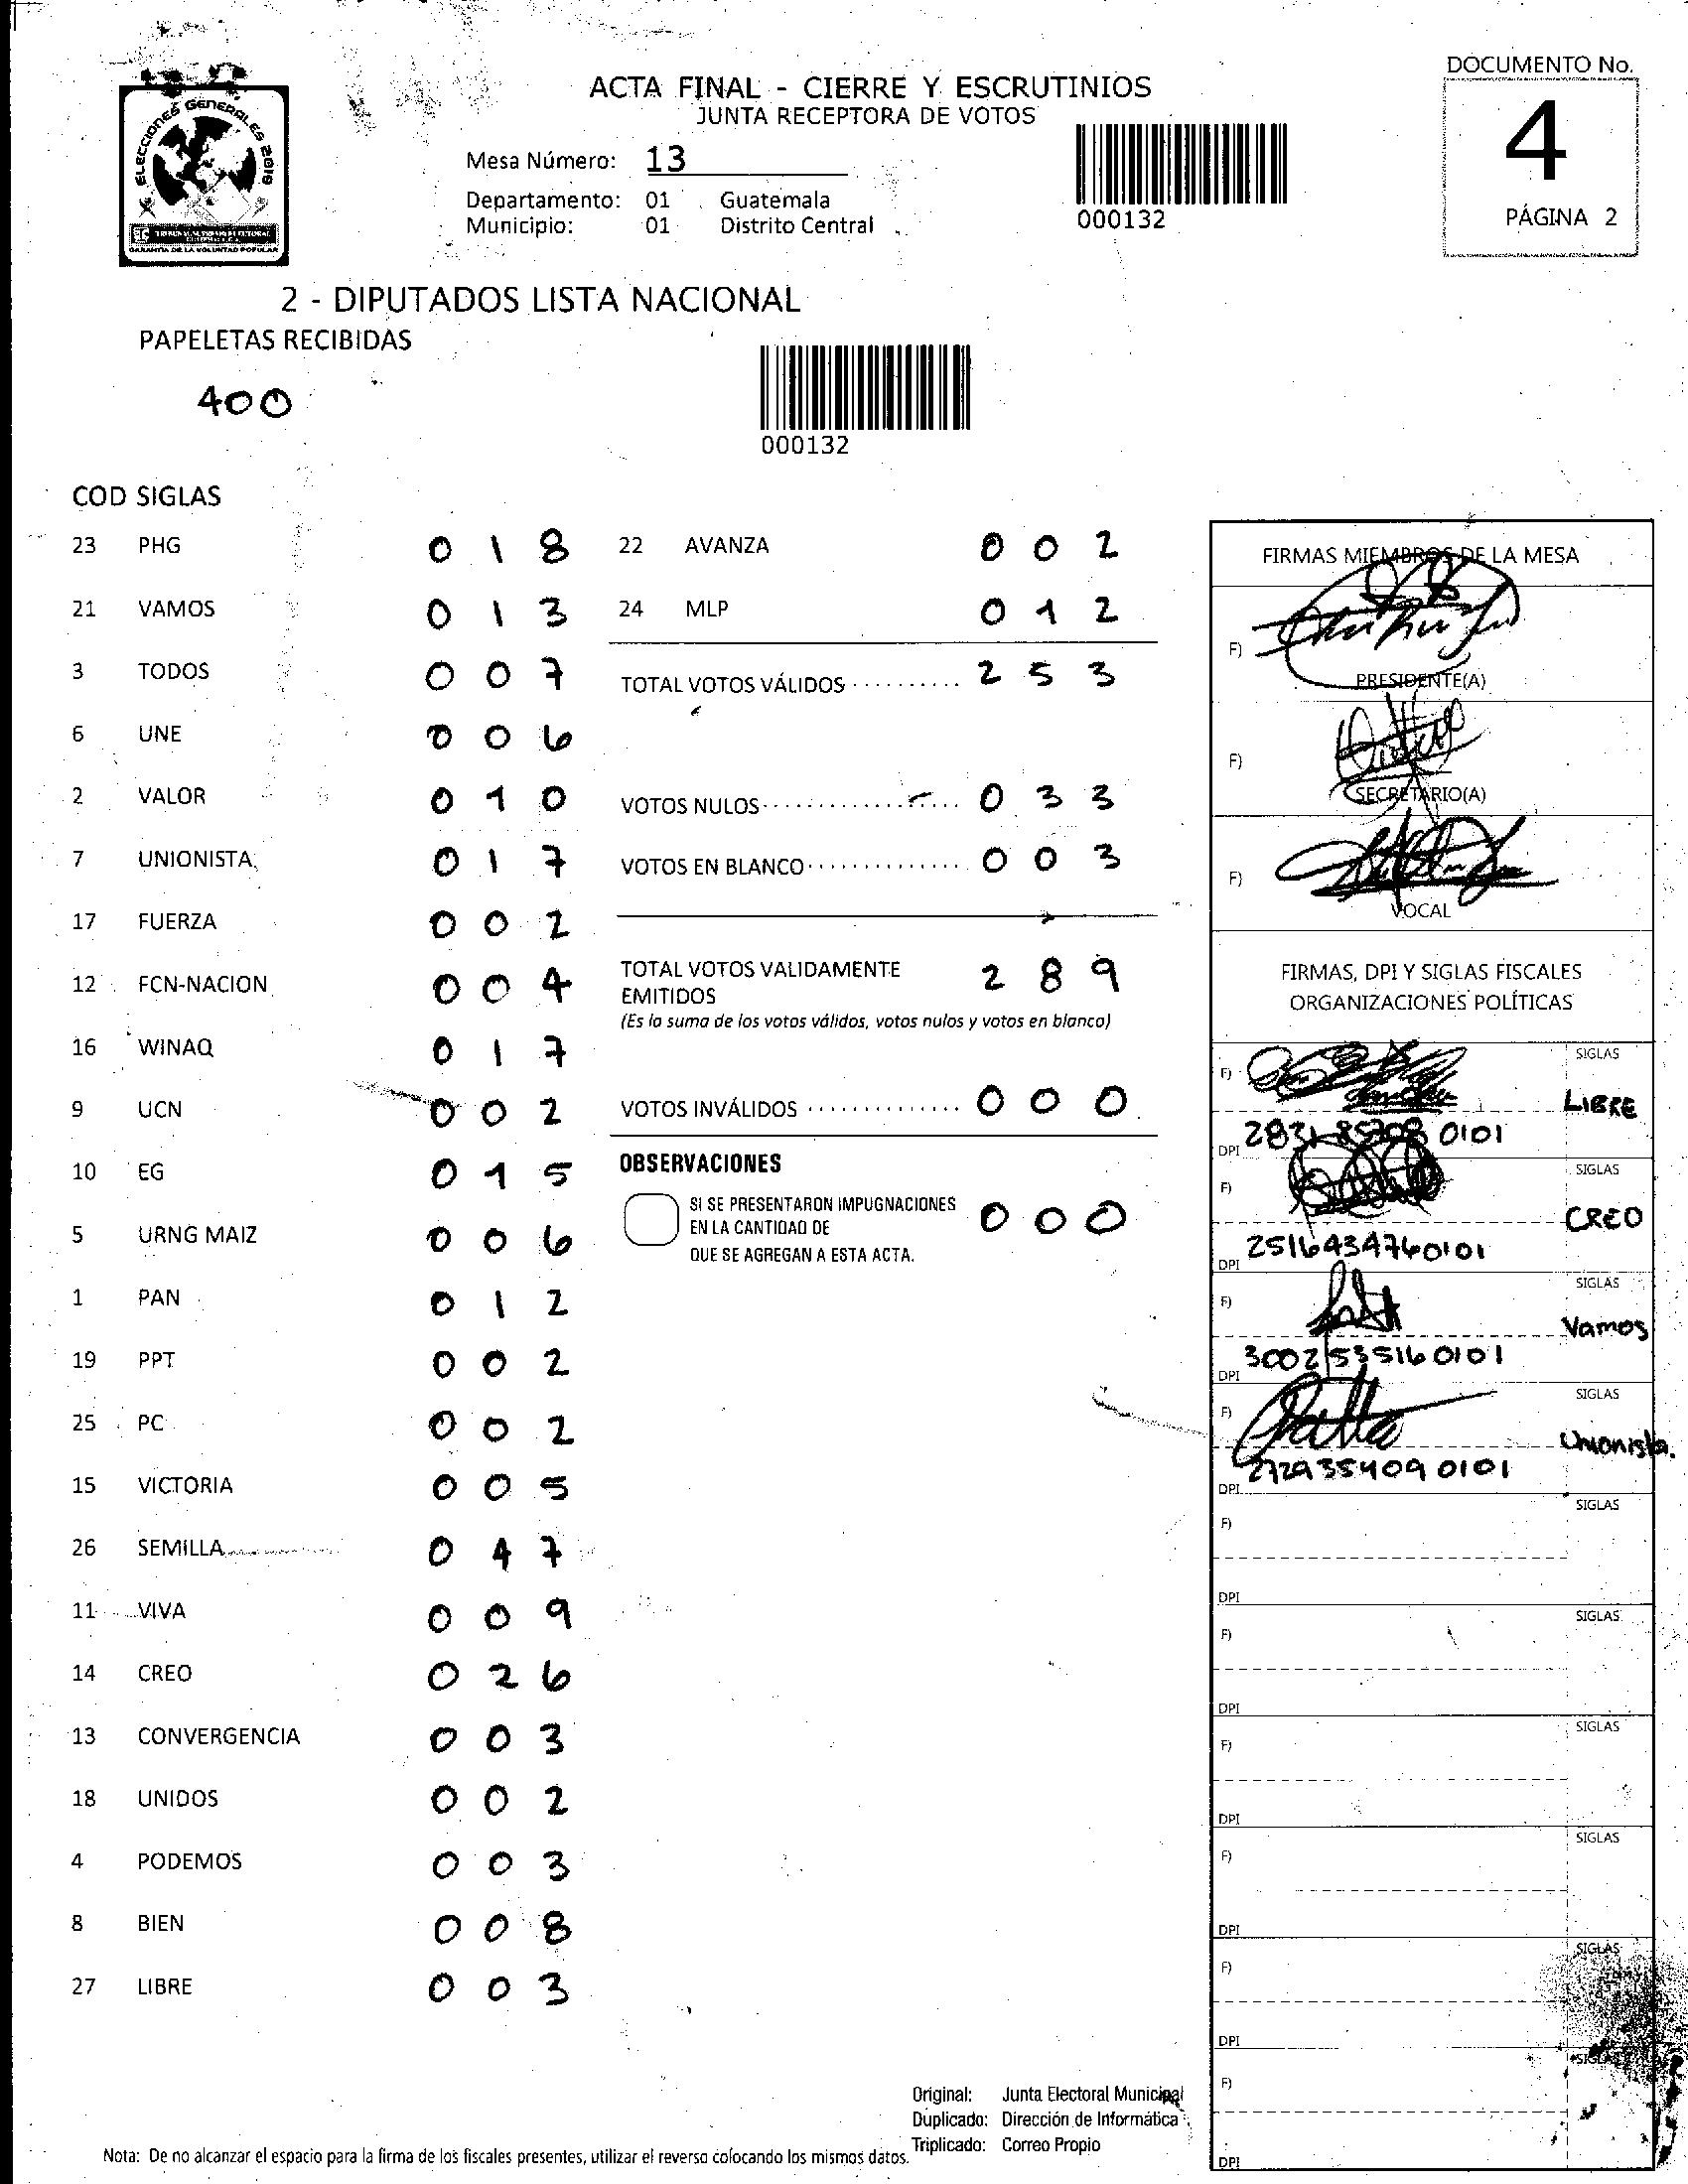 DOCUMENTO No.
4
PÁGINA 2
ELECCIONES GENERALES 2019
GARANTIA DE LA VOLUNTAD POPULAR
ACTA FINAL - CIERRE Y ESCRUTINIOS
JUNTA RECEPTORA DE VOTOS
Mesa Número: 13
Departamento: 01 Guatemala
Municipio: 01 Distrito Central
000132
2 - DIPUTADOS LISTA NACIONAL
PAPELETAS RECIBIDAS
400
000132
COD SIGLAS
23 PHG 0 1 8
21 VAMOS 0 1 3
3 TODOS 0 0 7
6 UNE 0 0 6
2 VALOR 0 1 0
7 UNIONISTA 0 1 7
17 FUERZA 0 0 2
12 FCN-NACION 0 0 4
16 WINAQ 0 1 7
9 UCN 0 0 2
10 EG 0 1 5
5 URNG MAIZ 0 0 6
1 PAN 0 1 2
19 PPT 0 0 2
25 PC 0 0 2
15 VICTORIA 0 0 5
26 SEMILLA 0 4 7
11 VIVA 0 0 9
14 CREO 0 2 6
13 CONVERGENCIA 0 0 3
18 UNIDOS 0 0 2
4 PODEMOS 0 0 3
8 BIEN 0 0 8
27 LIBRE 0 0 3
22 AVANZA 0 0 2
24 MLP 0 1 2
TOTAL VOTOS VÁLIDOS .......... 2 5 3
VOTOS NULOS .................. 0 3 3
VOTOS EN BLANCO .............. 0 0 3
TOTAL VOTOS VALIDAMENTE 2 8 9
EMITIDOS
(Es la suma de los votos válidos, votos nulos y votos en blanco)
VOTOS INVÁLIDOS .............. 0 0 0
OBSERVACIONES
SI SE PRESENTARON IMPUGNACIONES
EN LA CANTIDAD DE 0 0 0
QUE SE AGREGAN A ESTA ACTA.
FIRMAS MIEMBROS DE LA MESA
F)
PRESIDENTE(A)
F)
SECRETARIO(A)
F)
VOCAL
FIRMAS, DPI Y SIGLAS FISCALES
ORGANIZACIONES POLÍTICAS
F) SIGLAS
LIBRE
DPI 0101
F) SIGLAS
CREO
DPI 2516434760101
F) SIGLAS
Vamos
DPI 3002535160101
F) SIGLAS
Unionista.
DPI 2729354090101
F) SIGLAS
DPI
F) SIGLAS
DPI
F) SIGLAS
DPI
F) SIGLAS
DPI
F) SIGLAS
DPI
F) SIGLAS
DPI
Original: Junta Electoral Municipal
Duplicado: Dirección de Informática
Triplicado: Correo Propio
Nota: De no alcanzar el espacio para la firma de los fiscales presentes, utilizar el reverso colocando los mismos datos.